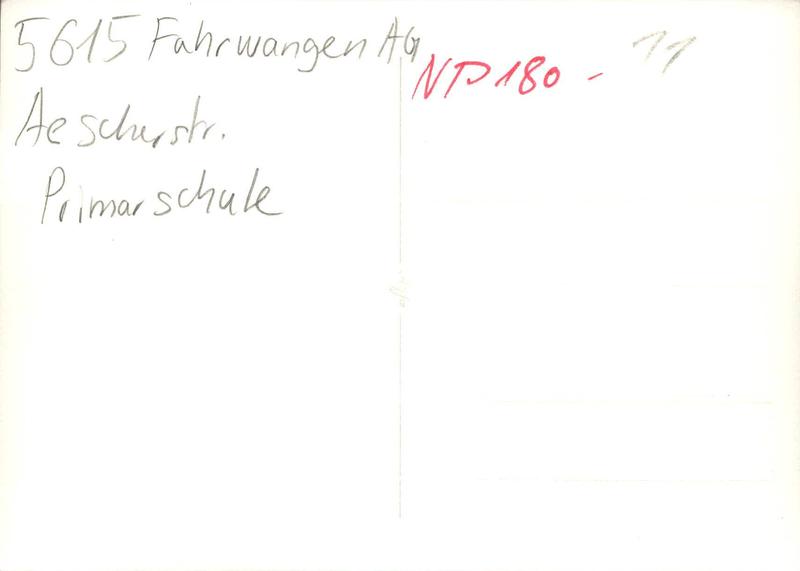 5615 Fahrwangen AG
Aescherstr.
Primarschule
NP 180 -
11